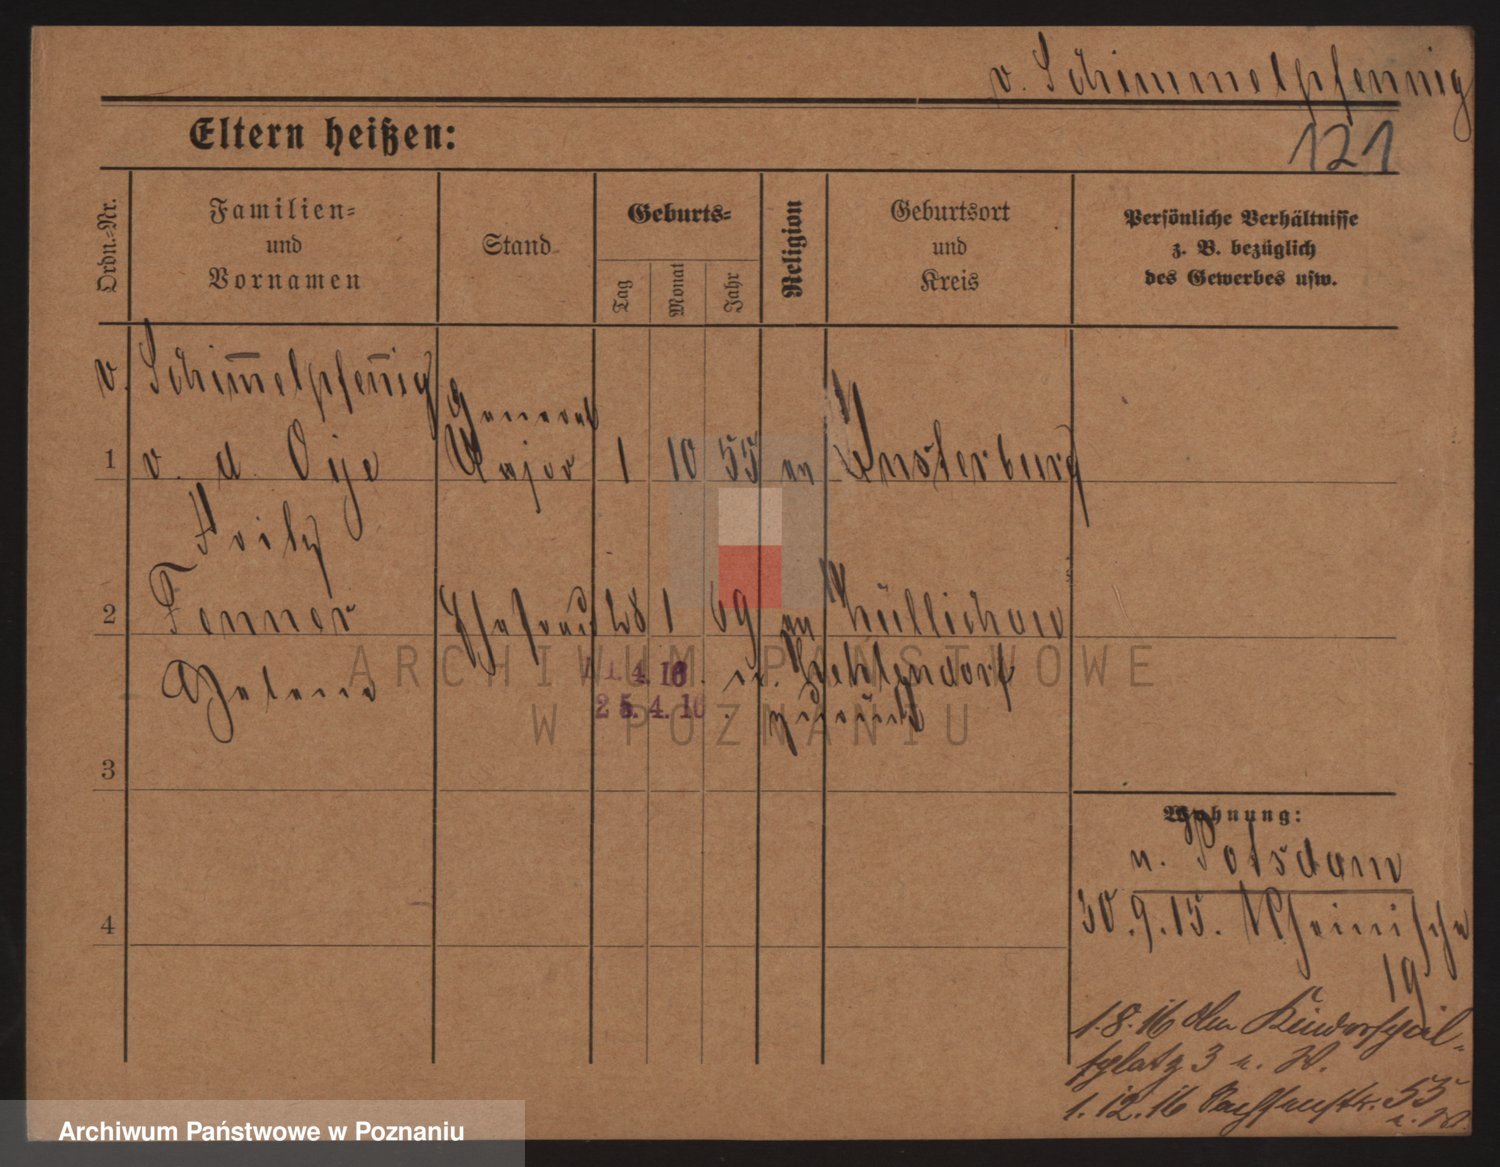 v. Schimmelpfennig
121
Eltern heißen:
Ordn.-Nr.
Familien-
und
Vornamen
Stand
Geburts-
Tag
Monat
Jahr
Religion
Geburtsort
und
Kreis
Persönliche Verhältnisse
z. B. bezüglich
des Gewerbes usw.
v. Schim̅elpfen̅ig
General
1 v. d. Oije Major 1 10 55 ev Insterburg
Fritz
2 Fenner Ehefrau 28 1 69 ev Züllichau
Helene
1. 4. 16. n. Zehlendorf
25. 4. 16. zurück
3
Wohnung:
n. Potsdam
4
30.9.15. Rheinische
19
1.8.16 Am Kinderspiel-
platz 3
1.12.16 55
ARCHIWUM PAŃSTWOWE
W POZNANIU
Archiwum Państwowe w Poznaniu